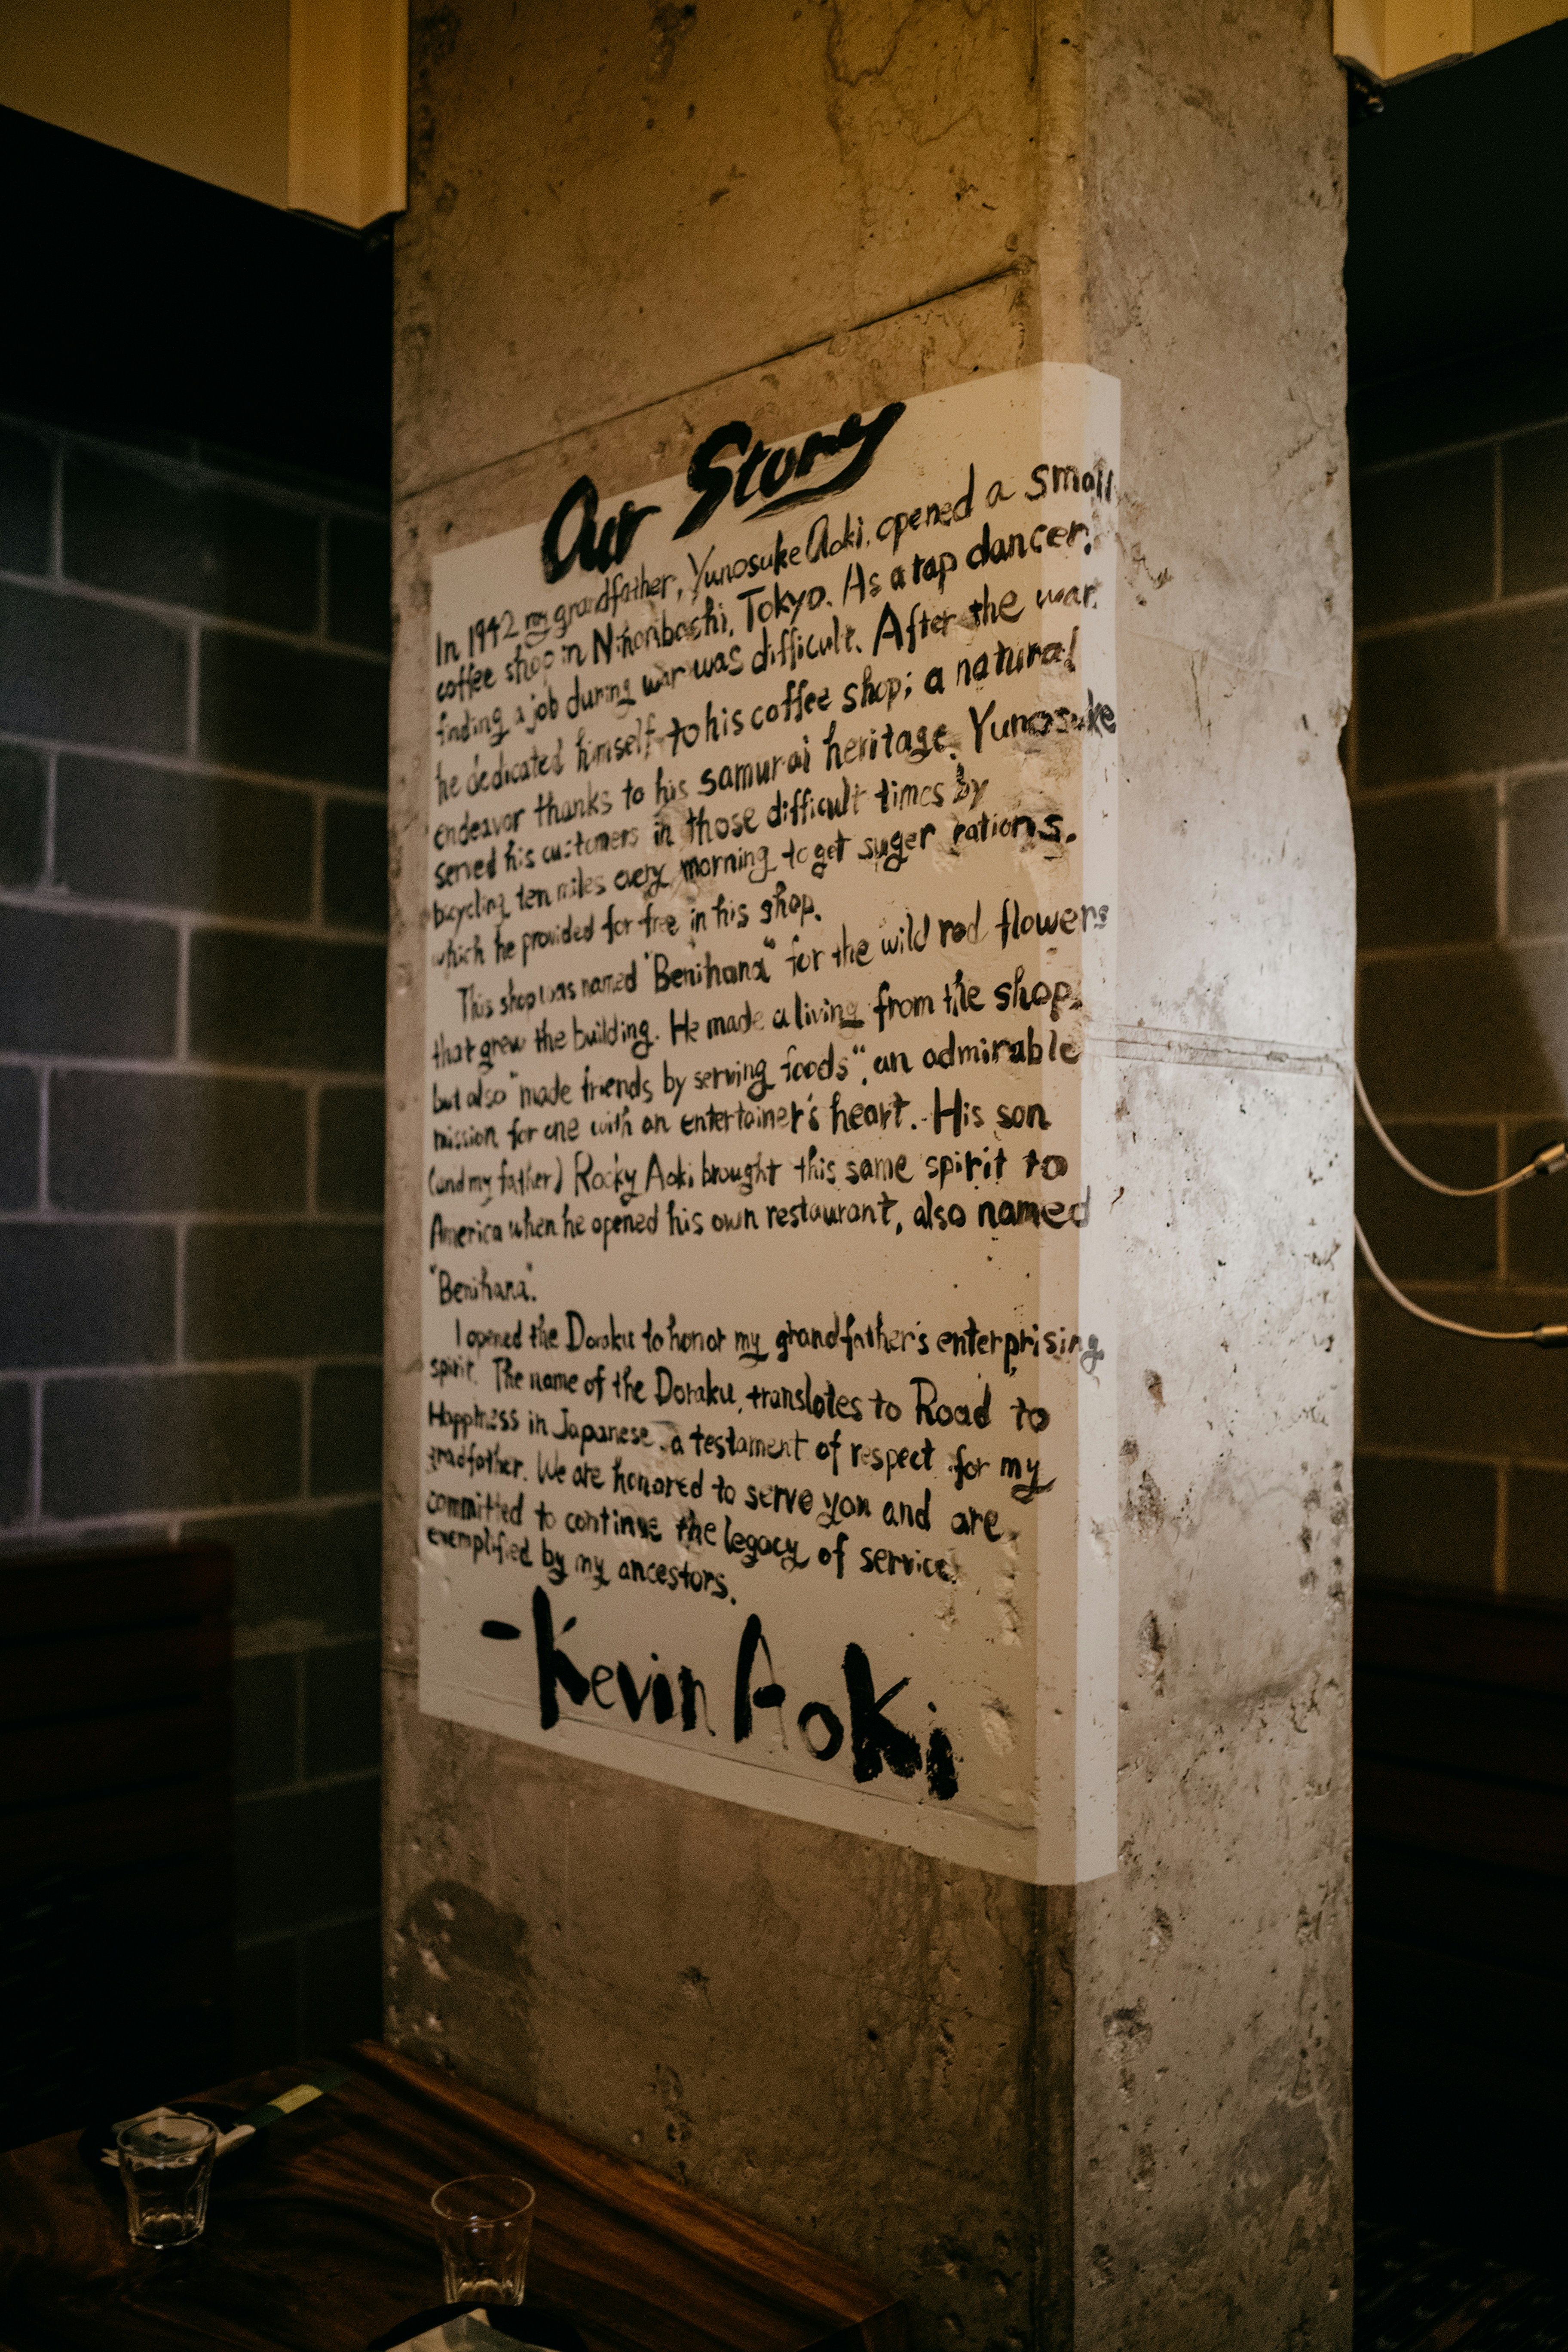 Our Story
In 1942 my grandfather, Yunosuke Aoki, opened a small
coffee shop in Nihonbashi, Tokyo. As a tap dancer,
finding a job during war was difficult. After the war,
he dedicated himself to his coffee shop; a natural
endeavor thanks to his samurai heritage. Yunosuke
served his customers in those difficult times by
bicycling ten miles every morning to get suger rations.
which he provided for free in his shop.
This shop was named "Benihana" for the wild red flowers
that grew the building. He made a living from the shop,
but also "made friends by serving foods", an admirable
mission for one with an entertainer's heart. His son
(and my father) Rocky Aoki brought this same spirit to
America when he opened his own restaurant, also named
"Benihana".
I opened the Doraku to honor my grandfather's enterprising
spirit. The name of the Doraku, translates to Road to
Happiness in Japanese, a testament of respect for my
gradfather. We are honored to serve you and are
committed to continue the legacy of service
exemplified by my ancestors.
-Kevin Aoki